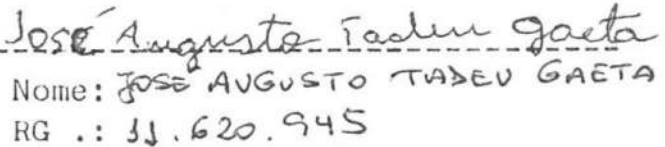 José Augusto Tadeu Gaeta
Nome: JOSÉ AUGUSTO TADEU GAETA
RG .: 11.620.945